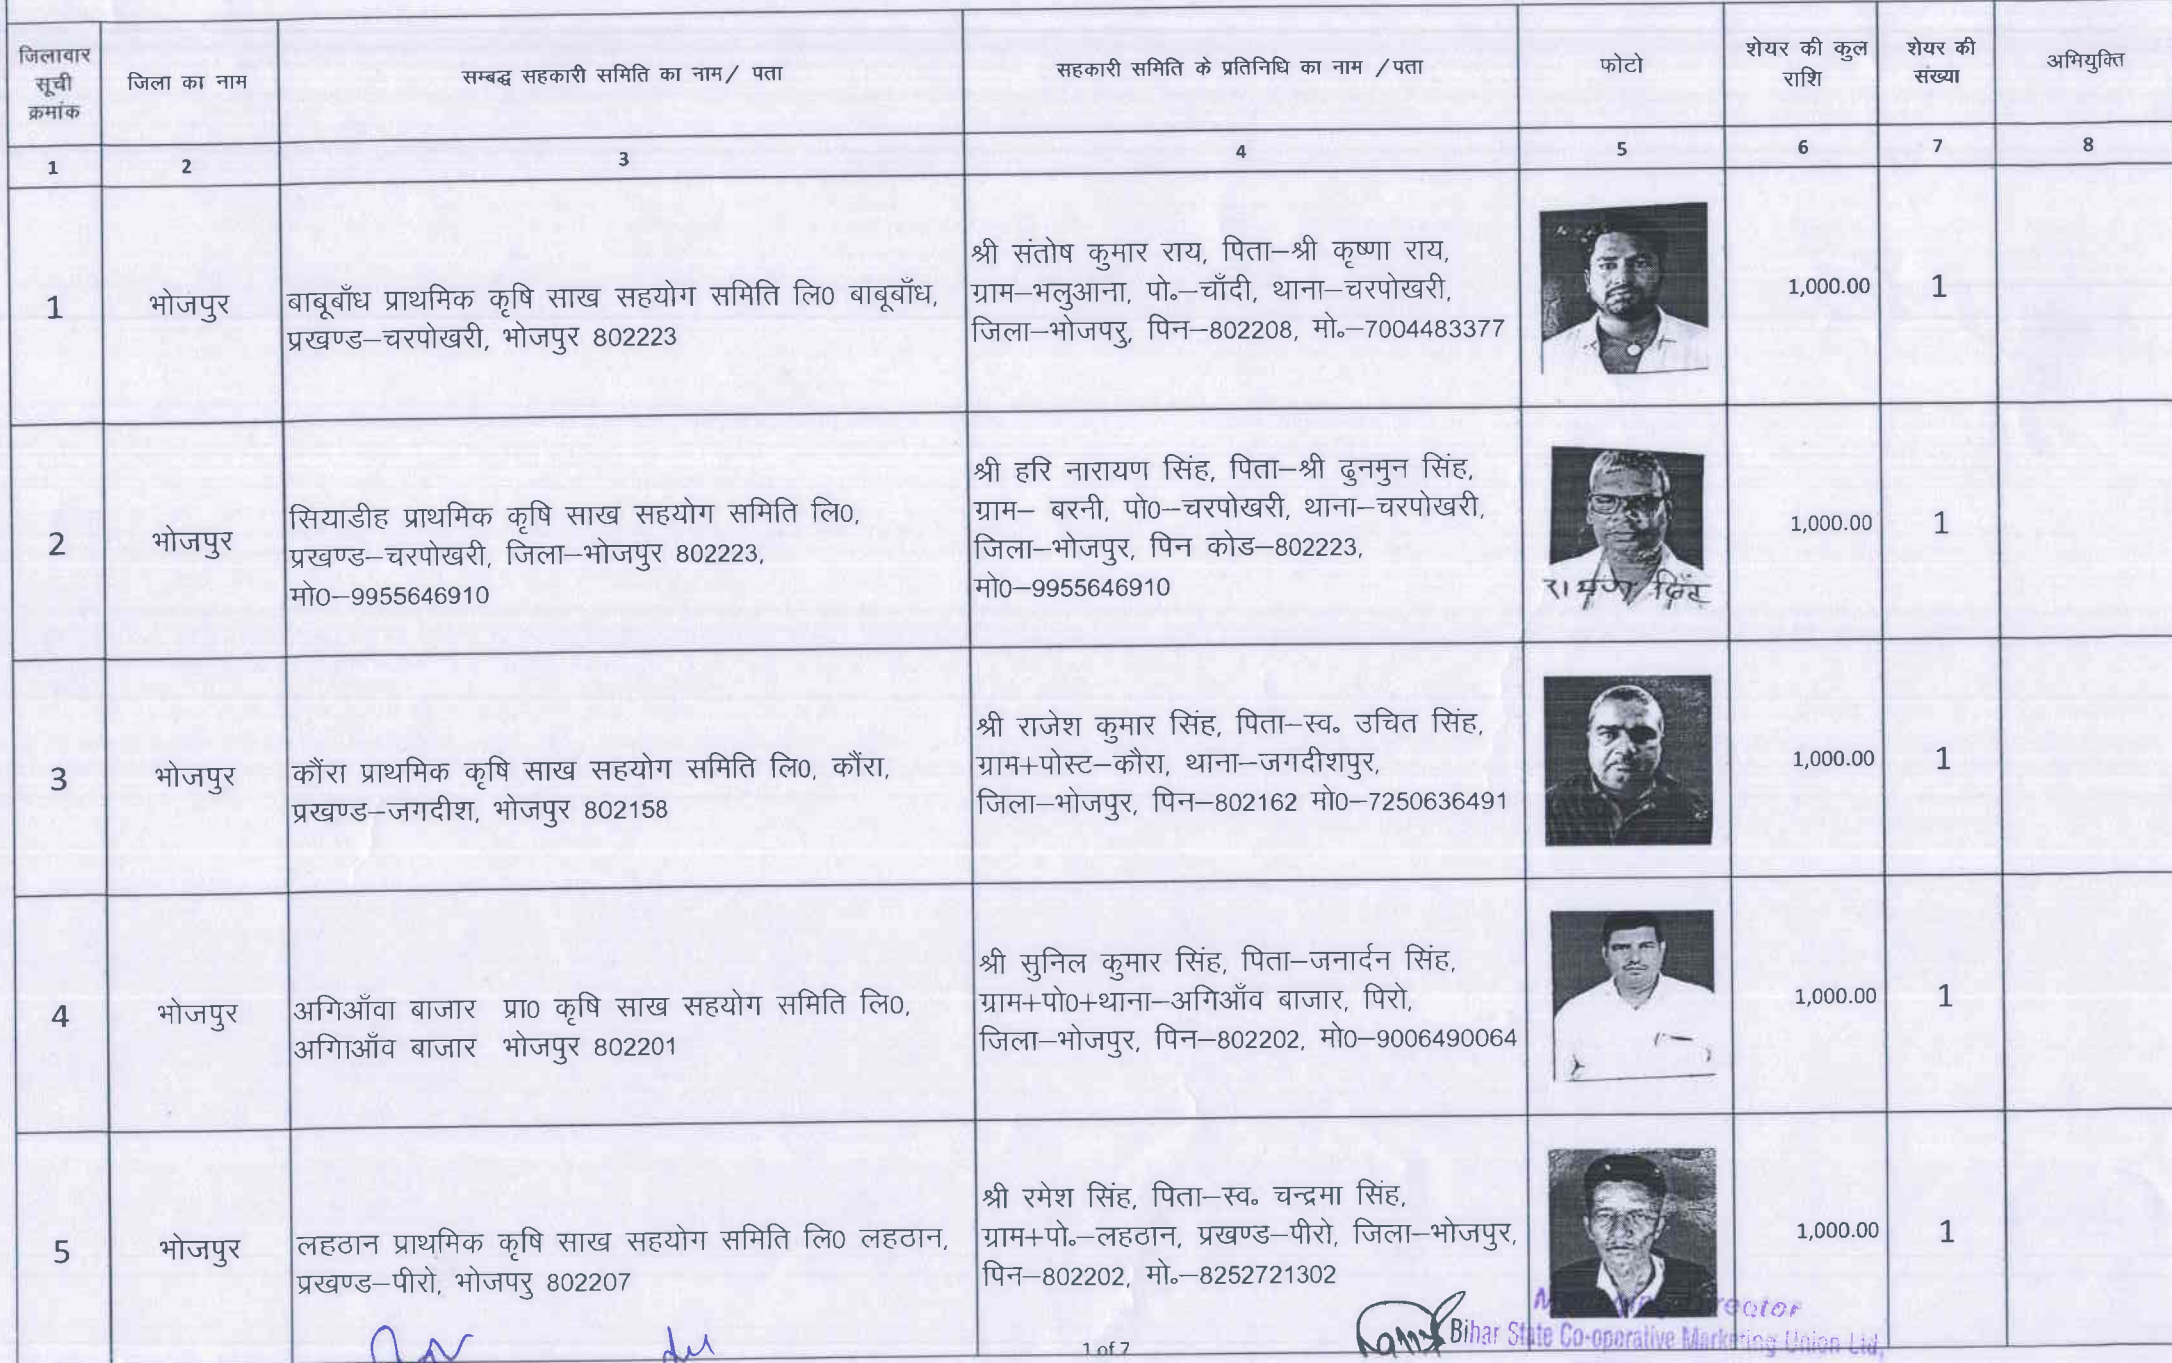 जिलावार
सूची
क्रमांक
जिला का नाम
सम्बद्ध सहकारी समिति का नाम/ पता
सहकारी समिति के प्रतिनिधि का नाम /पता
फोटो
शेयर की कुल
राशि
शेयर की
संख्या
अभियुक्ति
1
2
3
4
5
6
7
8
1
भोजपुर
बाबूबाँध प्राथमिक कृषि साख सहयोग समिति लि0 बाबूबाँध,
प्रखण्ड–चरपोखरी, भोजपुर 802223
श्री संतोष कुमार राय, पिता–श्री कृष्णा राय,
ग्राम–भलुआना, पो॰–चाँदी, थाना–चरपोखरी,
जिला–भोजपरु, पिन–802208, मो॰–7004483377
1,000.00
1
2
भोजपुर
सियाडीह प्राथमिक कृषि साख सहयोग समिति लि0,
प्रखण्ड–चरपोखरी, जिला–भोजपुर 802223,
मो0–9955646910
श्री हरि नारायण सिंह, पिता–श्री ढुनमुन सिंह,
ग्राम– बरनी, पो0–चरपोखरी, थाना–चरपोखरी,
जिला–भोजपुर, पिन कोड–802223,
मो0–9955646910
1,000.00
1
3
भोजपुर
कौंरा प्राथमिक कृषि साख सहयोग समिति लि0, कौंरा,
प्रखण्ड–जगदीश, भोजपुर 802158
श्री राजेश कुमार सिंह, पिता–स्व॰ उचित सिंह,
ग्राम+पोस्ट–कौरा, थाना–जगदीशपुर,
जिला–भोजपुर, पिन–802162 मो0–7250636491
1,000.00
1
4
भोजपुर
अगिआँवा बाजार प्रा0 कृषि साख सहयोग समिति लि0,
अगिाआँव बाजार भोजपुर 802201
श्री सुनिल कुमार सिंह, पिता–जनार्दन सिंह,
ग्राम+पो0+थाना–अगिआँव बाजार, पिरो,
जिला–भोजपुर, पिन–802202, मो0–9006490064
1,000.00
1
5
भोजपुर
लहठान प्राथमिक कृषि साख सहयोग समिति लि0 लहठान,
प्रखण्ड–पीरो, भोजपरु 802207
श्री रमेश सिंह, पिता–स्व॰ चन्द्रमा सिंह,
ग्राम+पो॰–लहठान, प्रखण्ड–पीरो, जिला–भोजपुर,
पिन–802202, मो॰–8252721302
1,000.00
1
1 of 7
Bihar State Co-operative Marketing Union Ltd.